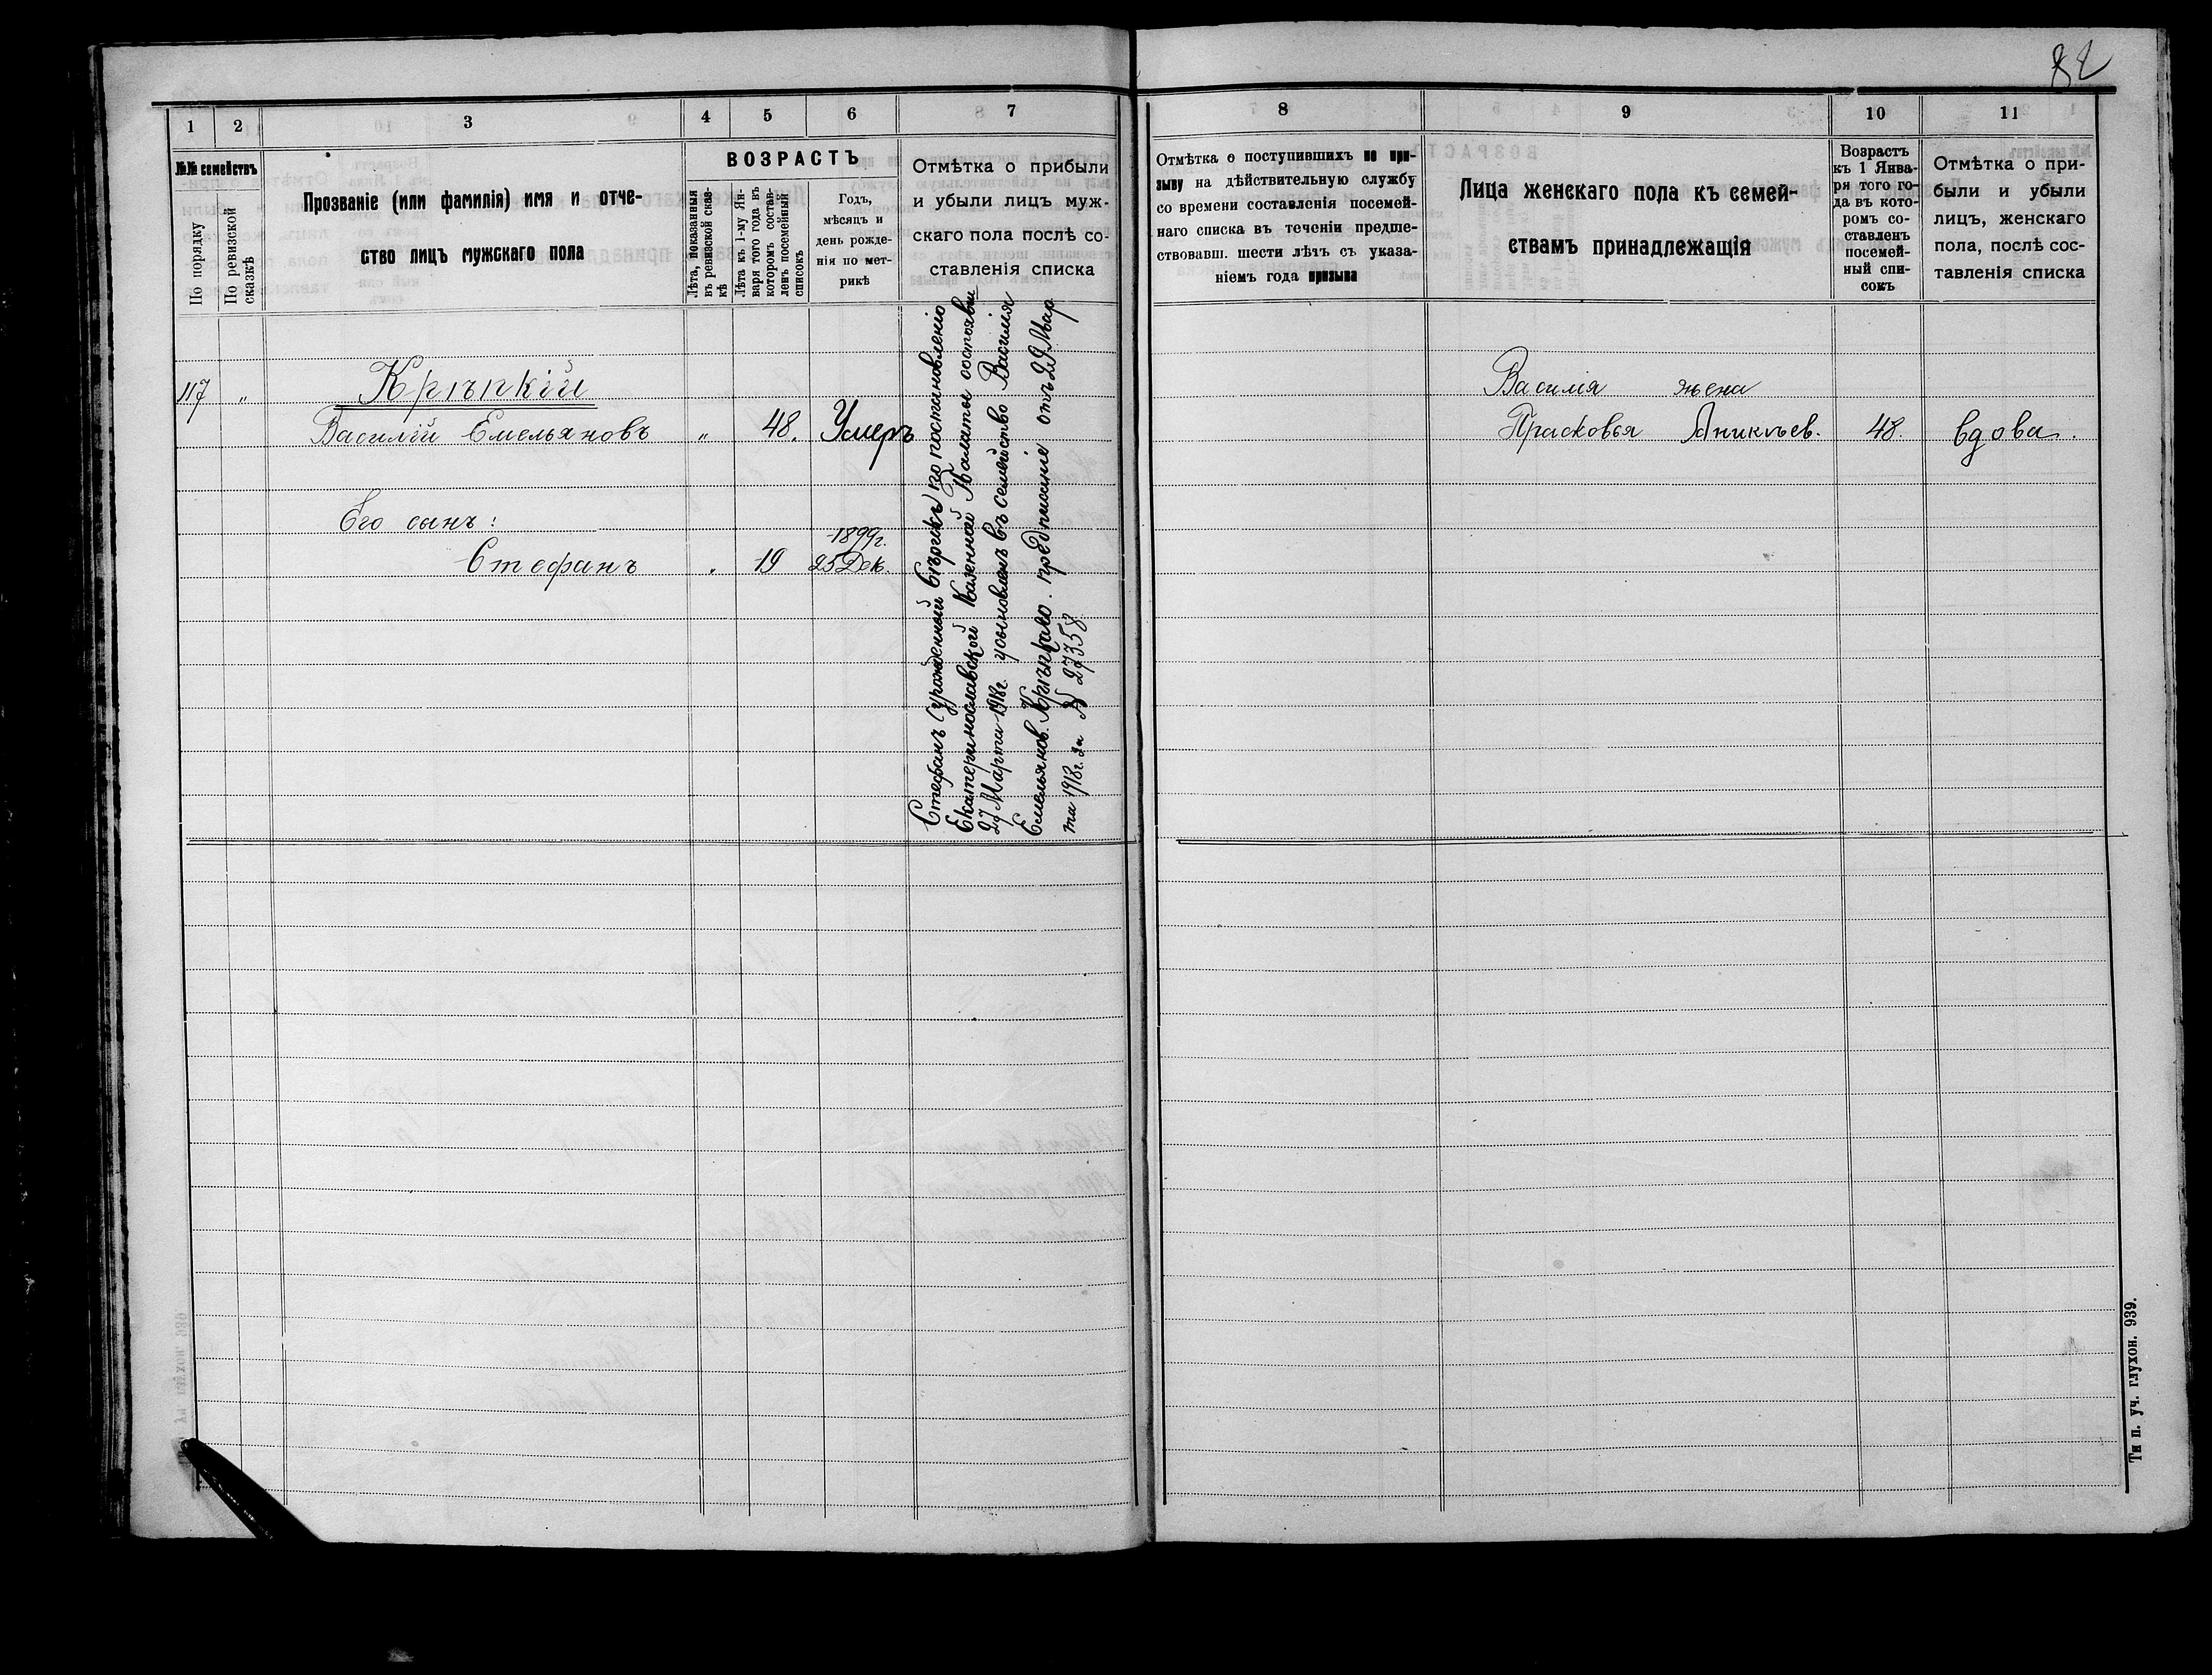 82
1 2 3 4 5 6 7
№№ семействъ
По порядку
По ревизской сказкѣ
Прозваніе (или фамилія) имя и отче-
ство лицъ мужскаго пола
ВОЗРАСТЪ
Лѣта, показанныя
въ ревизской сказ-
кѣ
Лѣта къ 1-му Ян-
варя того года въ
которомъ состав-
ленъ посемейный
списокъ
Годъ,
мѣсяцъ и
день рожде-
нія по мет-
рикѣ
Отмѣтка о прибыли
и убыли лицъ муж-
скаго пола послѣ со-
ставленія списка
117 „ Крѣпкій
Василій Емельяновъ „ 48. Умеръ
Его сынъ:
1899г.
Стефанъ „ 19 25 Дек.
Стефанъ (урожденный) по постановленію
Екатеринославской Казенной Палаты состоявш
27 Марта 1918г. усыновленъ въ семейство Василія
Емельянов. Крѣпкаго. предписаніе отъ 29 Мар
та 1918г. за № 27358
8 9 10 11
Отмѣтка о поступившихъ по при-
зыву на дѣйствительную службу
со времени составленія посемей-
наго списка въ теченіи предше-
ствовавш. шести лѣтъ съ указа-
ніемъ года призыва
Лица женскаго пола къ семей-
ствамъ принадлежащія
Возрастъ
къ 1 Янва-
ря того го-
да въ кото-
ромъ со-
ставленъ
посемей-
ный спи-
сокъ
Отмѣтка о при-
были и убыли
лицъ, женскаго
пола, послѣ сос-
тавленія списка
Василія жена
Прасковья Аникѣев. 48. вдова.
Тип. уч. глухон. 939.